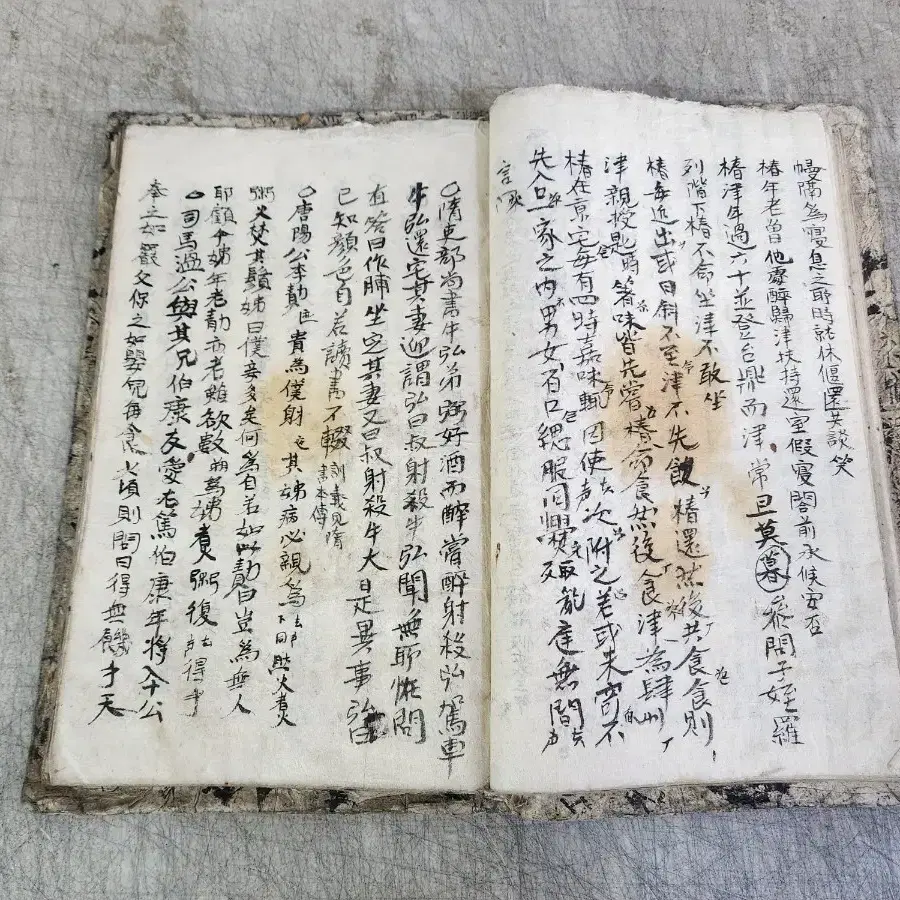 幔隔為寢息之所時就休偃還共談笑
椿年老曾他處醉歸津扶持還室假寢閤前承候安否
椿津年過六十並登台鼎而津常旦莫暮參問子姪羅
列階下椿不命坐津不敢坐
椿每近出或日斜不至津不先飯椿還然後共食食則
津親授匙時箸味皆先嘗椿命食然後食津為肆州
椿在京宅每有四時嘉味輒因使次附之若或未寄不
先入口一家之內男女百口緦服同爨庭無間
言
○隋吏部尚書牛弘弟弼好酒而醉嘗醉射殺弘駕車
牛弘還宅其妻迎謂弘曰叔射殺牛弘聞無所恠問
直答曰作脯坐定其妻又曰叔射殺牛大是異事弘曰
已知顔色自若讀書不輟訓義見隋書本傳
○唐公李勣貴為僕射其姊病必親為然火煮
粥火焚其鬚姊曰僕妾多矣何為自苦如此勣曰豈為無人
耶顧今姊年老勣亦老雖欲數為姊煮粥復可得乎
○司馬過公與其兄伯康友愛尤篤伯康年將八十公
奉之如嚴父保之如嬰兒每食少頃則問曰得無饑乎天